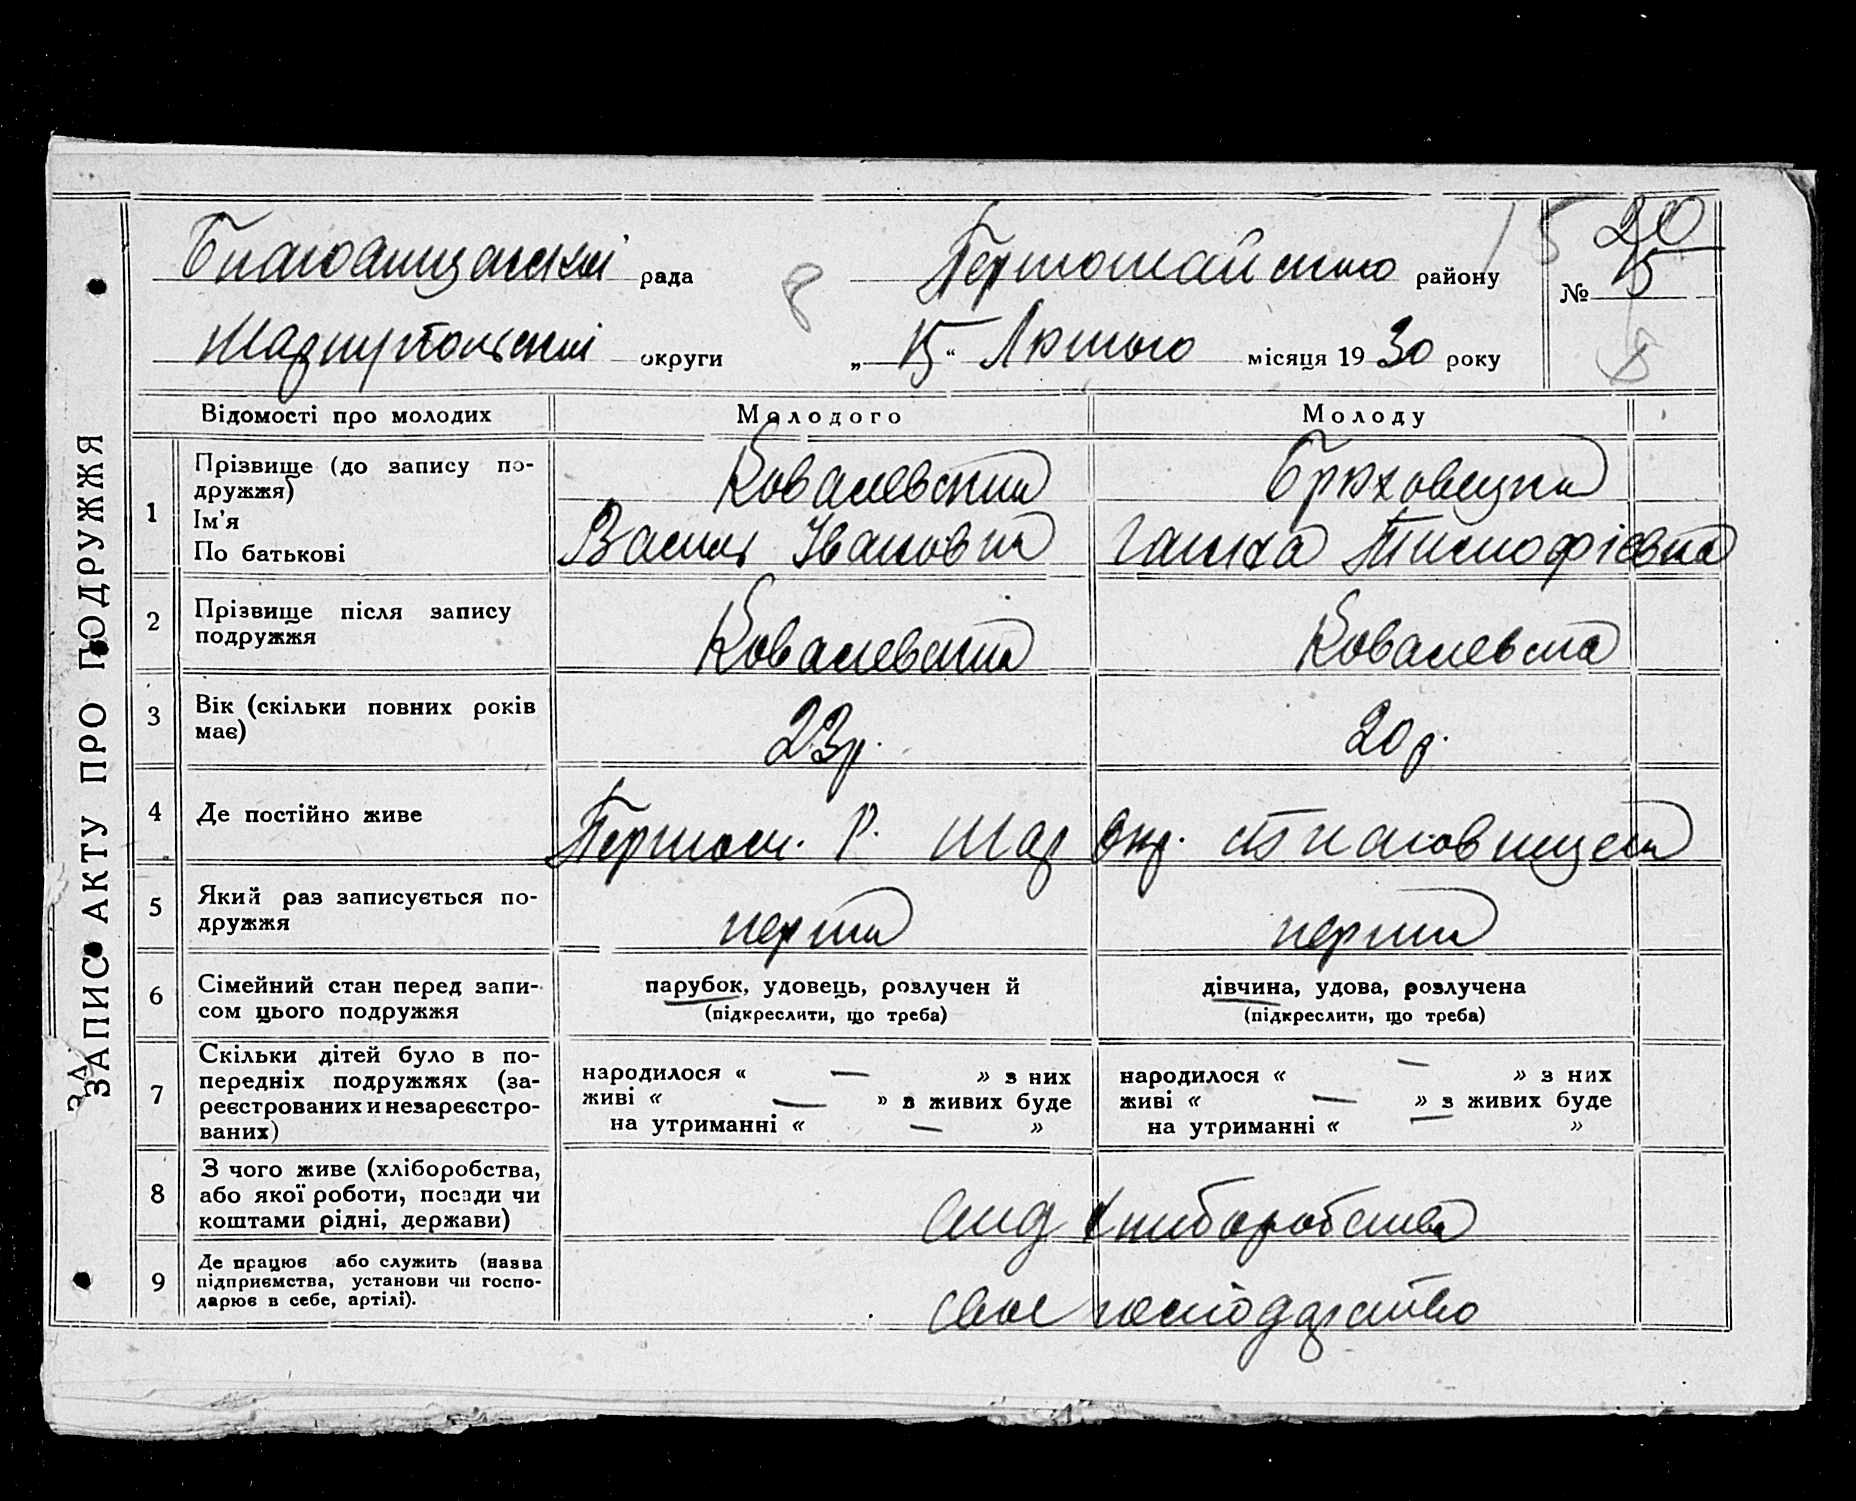 ЗАПИС АКТУ ПРО ПОДРУЖЖЯ
ЗА
рада
8
Першотравнського району
15
20
№ 15
8
Маріупольської округи
„ 15 “ Лютого місяця 19 30 року
Відомості про молодих
Молодого
Молоду
1
Прізвище (до запису по-
дружжя)
Ім'я
По батькові
Ковалевский
Брюховецка
Василь Іванович
Ганна Тимофієвна
2
Прізвище після запису
подружжя
Ковалевский
Ковалевска
3
Вік (скільки повних років
має)
23 р.
20 р.
4
Де постійно живе
Р. Мар окр.
5
Який раз записується по-
дружжя
перший
перший
6
Сімейний стан перед запи-
сом цього подружжя
парубок, удовець, розлучен й
(підкреслити, що треба)
дівчина, удова, розлучена
(підкреслити, що треба)
7
Скільки дітей було в по-
передніх подружжях (за-
реєстрованих и незареєстро-
ваних)
народилося « — » з них
живі « — » з живих буде
на утриманні « — »
народилося « — » з них
живі « — » з живих буде
на утриманні « — »
8
З чого живе (хліборобства,
або якої роботи, посади чи
коштами рідні, держави)
хлиборобства
9
Де працює або служить (назва
підприємства, установи чи госпо-
дарює в себе, артілі).
свое господарство